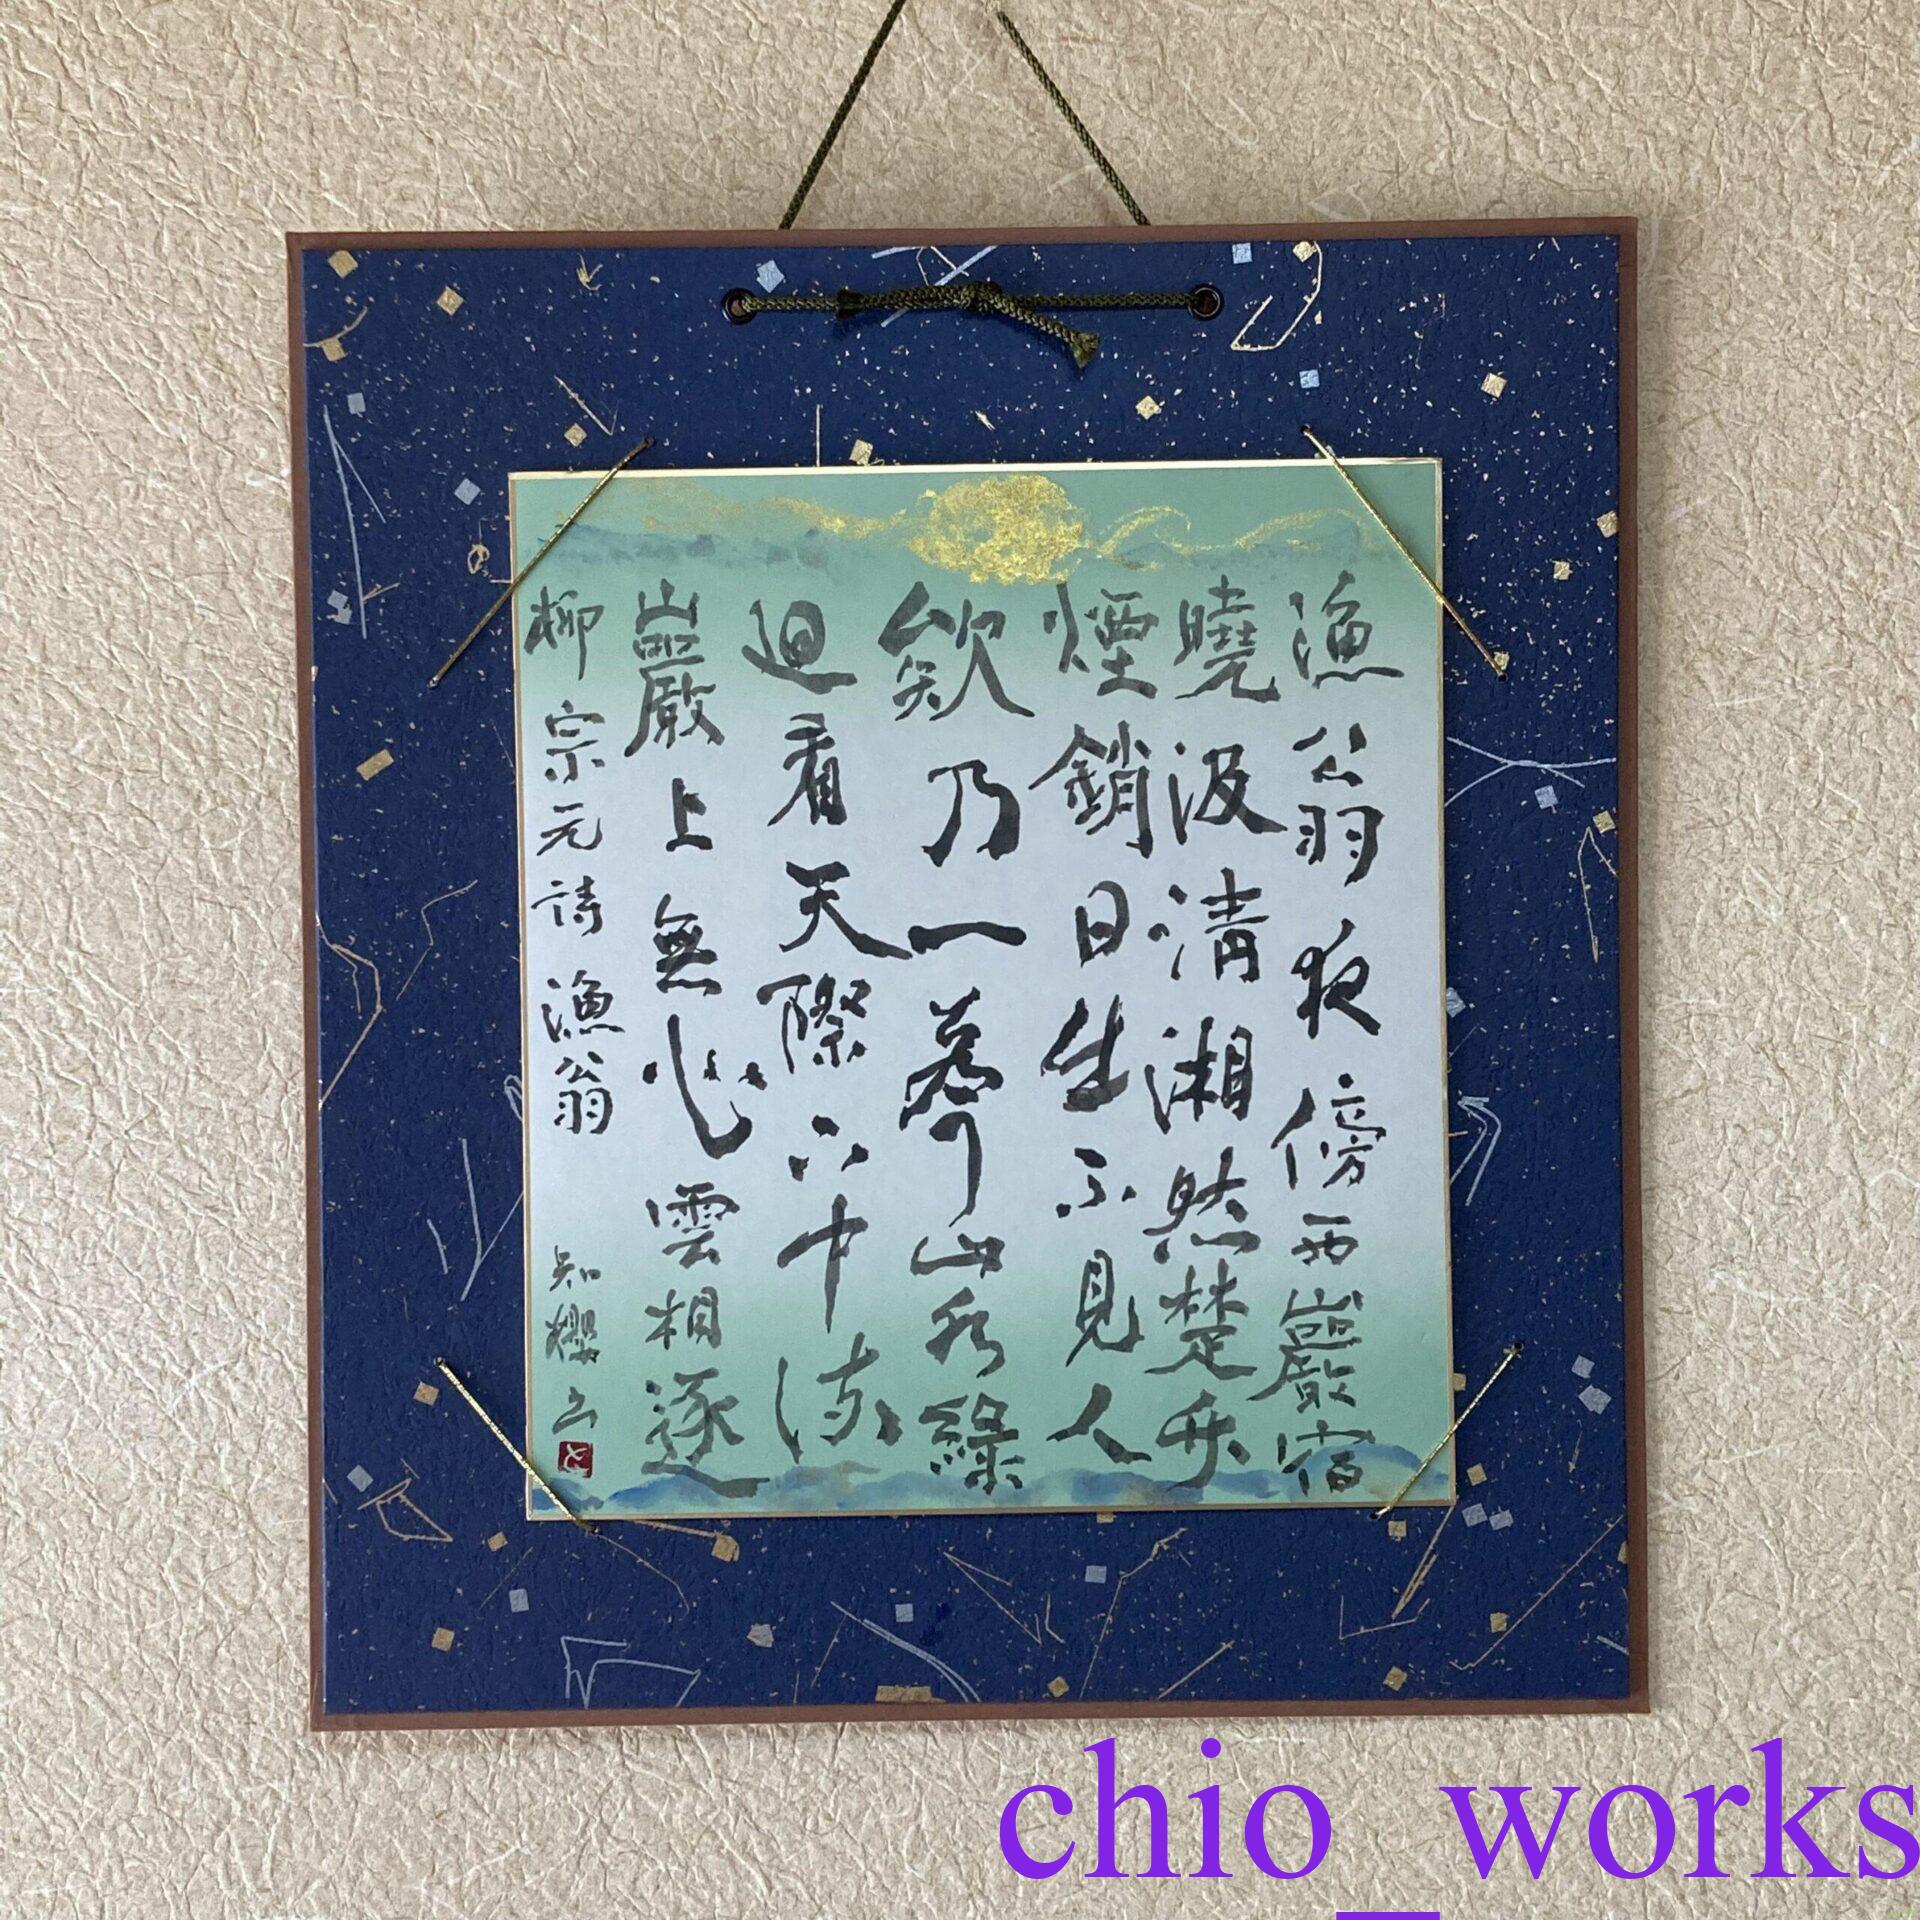 漁翁夜傍西巖宿
曉汲清湘然楚竹
煙銷日出不見人
欸乃一聲山水綠
迴看天際下中流
巖上無心雲相逐
柳宗元詩 漁翁 知櫻書
chio_works